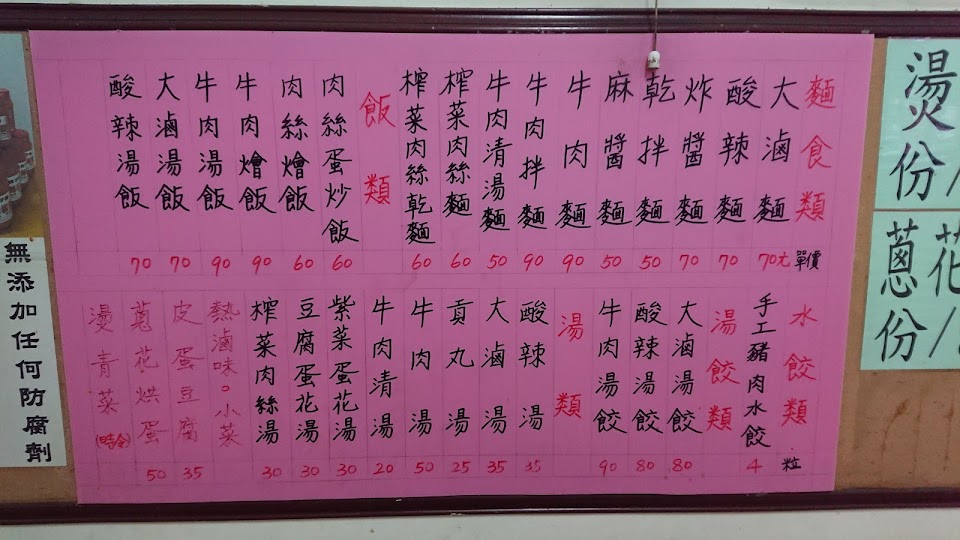 麵食類 單價
大滷麵 70元
酸辣麵 70
炸醬麵 70
乾拌麵 50
麻醬麵 50
牛肉麵 90
牛肉拌麵 90
牛肉清湯麵 50
榨菜肉絲麵 60
榨菜肉絲乾麵 60
飯類
肉絲蛋炒飯 60
肉絲燴飯 60
牛肉燴飯 90
牛肉湯飯 90
大滷湯飯 70
酸辣湯飯 70
水餃類 粒
手工豬肉水餃 4
湯餃類
大滷湯餃 80
酸辣湯餃 80
牛肉湯餃 90
湯類
酸辣湯 35
大滷湯 35
貢丸湯 25
牛肉湯 50
牛肉清湯 20
紫菜蛋花湯 30
豆腐蛋花湯 30
榨菜肉絲湯 30
熱滷味。小菜
皮蛋豆腐 35
蔥花烘蛋 50
燙青菜(時令)
無添加任何防腐劑
燙
份/
蔥花
份/